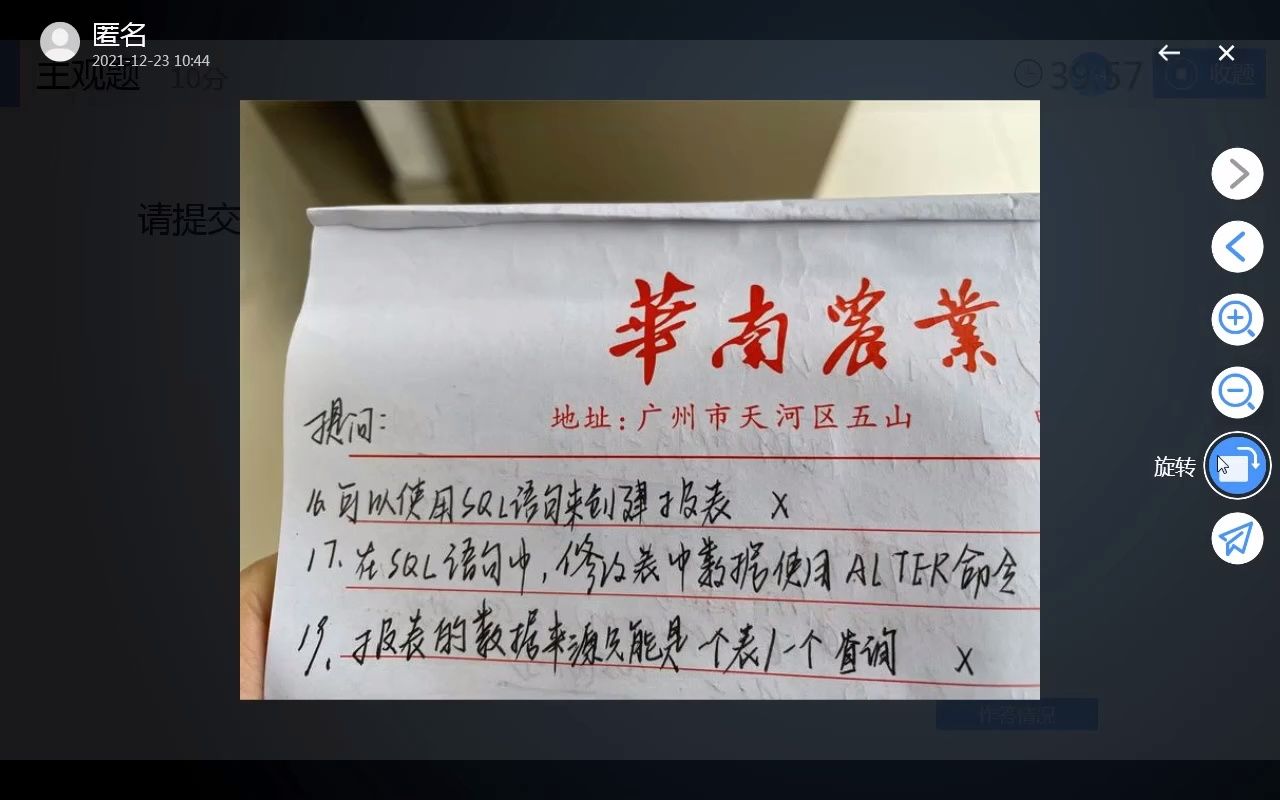 匿名
2021-12-23 10:44
主观题 10分
39:57
收题
请提交
華南農業
地址:广州市天河区五山
提问:
16.可以使用SQL语句来创建报表 X
17.在SQL语句中,修改表中数据使用ALTER命令
19.报表的数据来源只能是一个表/一个查询 X
旋转
作答情况